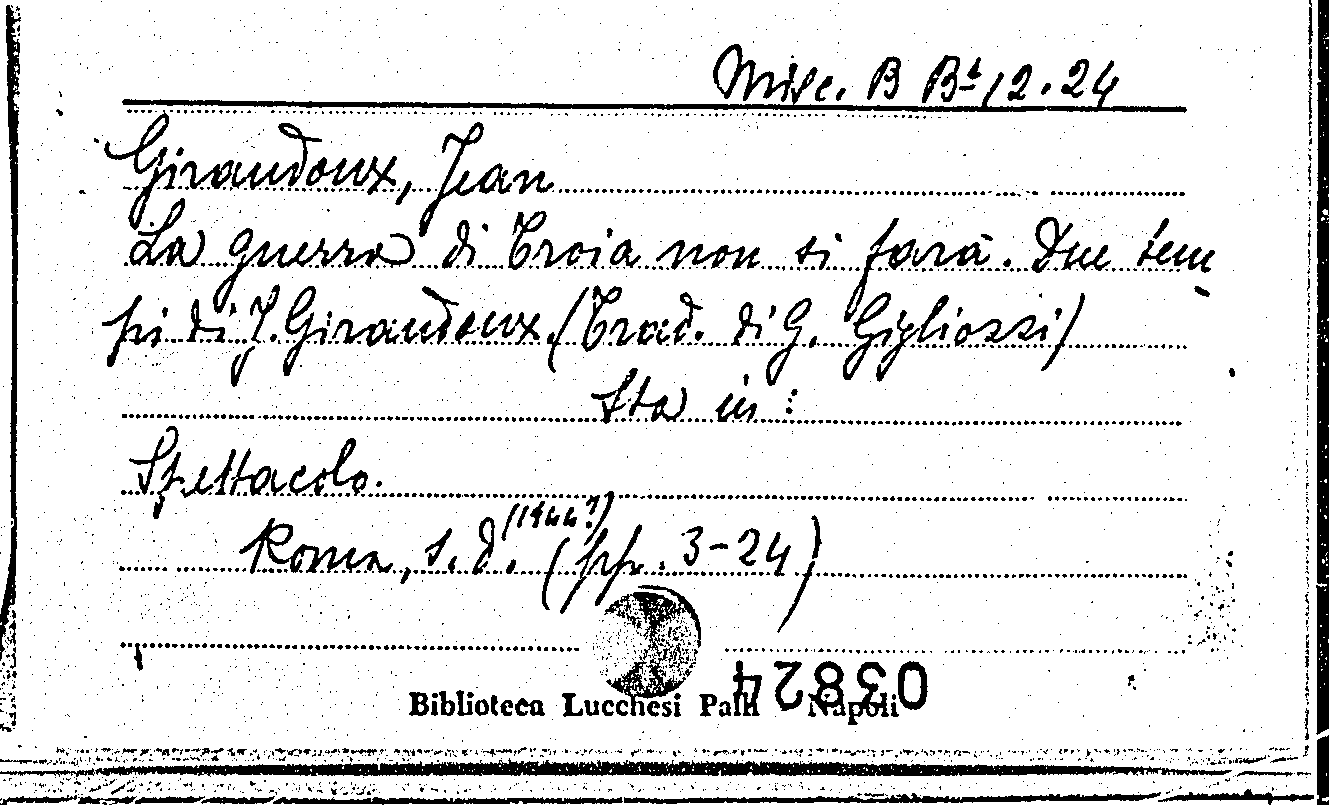 Misc. B Bˢ 12.24
Giraudoux, Jean
La guerra di Troia non si farà. Due tem
pi di J. Giraudoux. (Trad. di G. Gigliozzi)
Sta in:
Spettacolo.
Roma, s.d. (1944?) (pp. 3-24)
03824
Biblioteca Lucchesi Palli Napoli